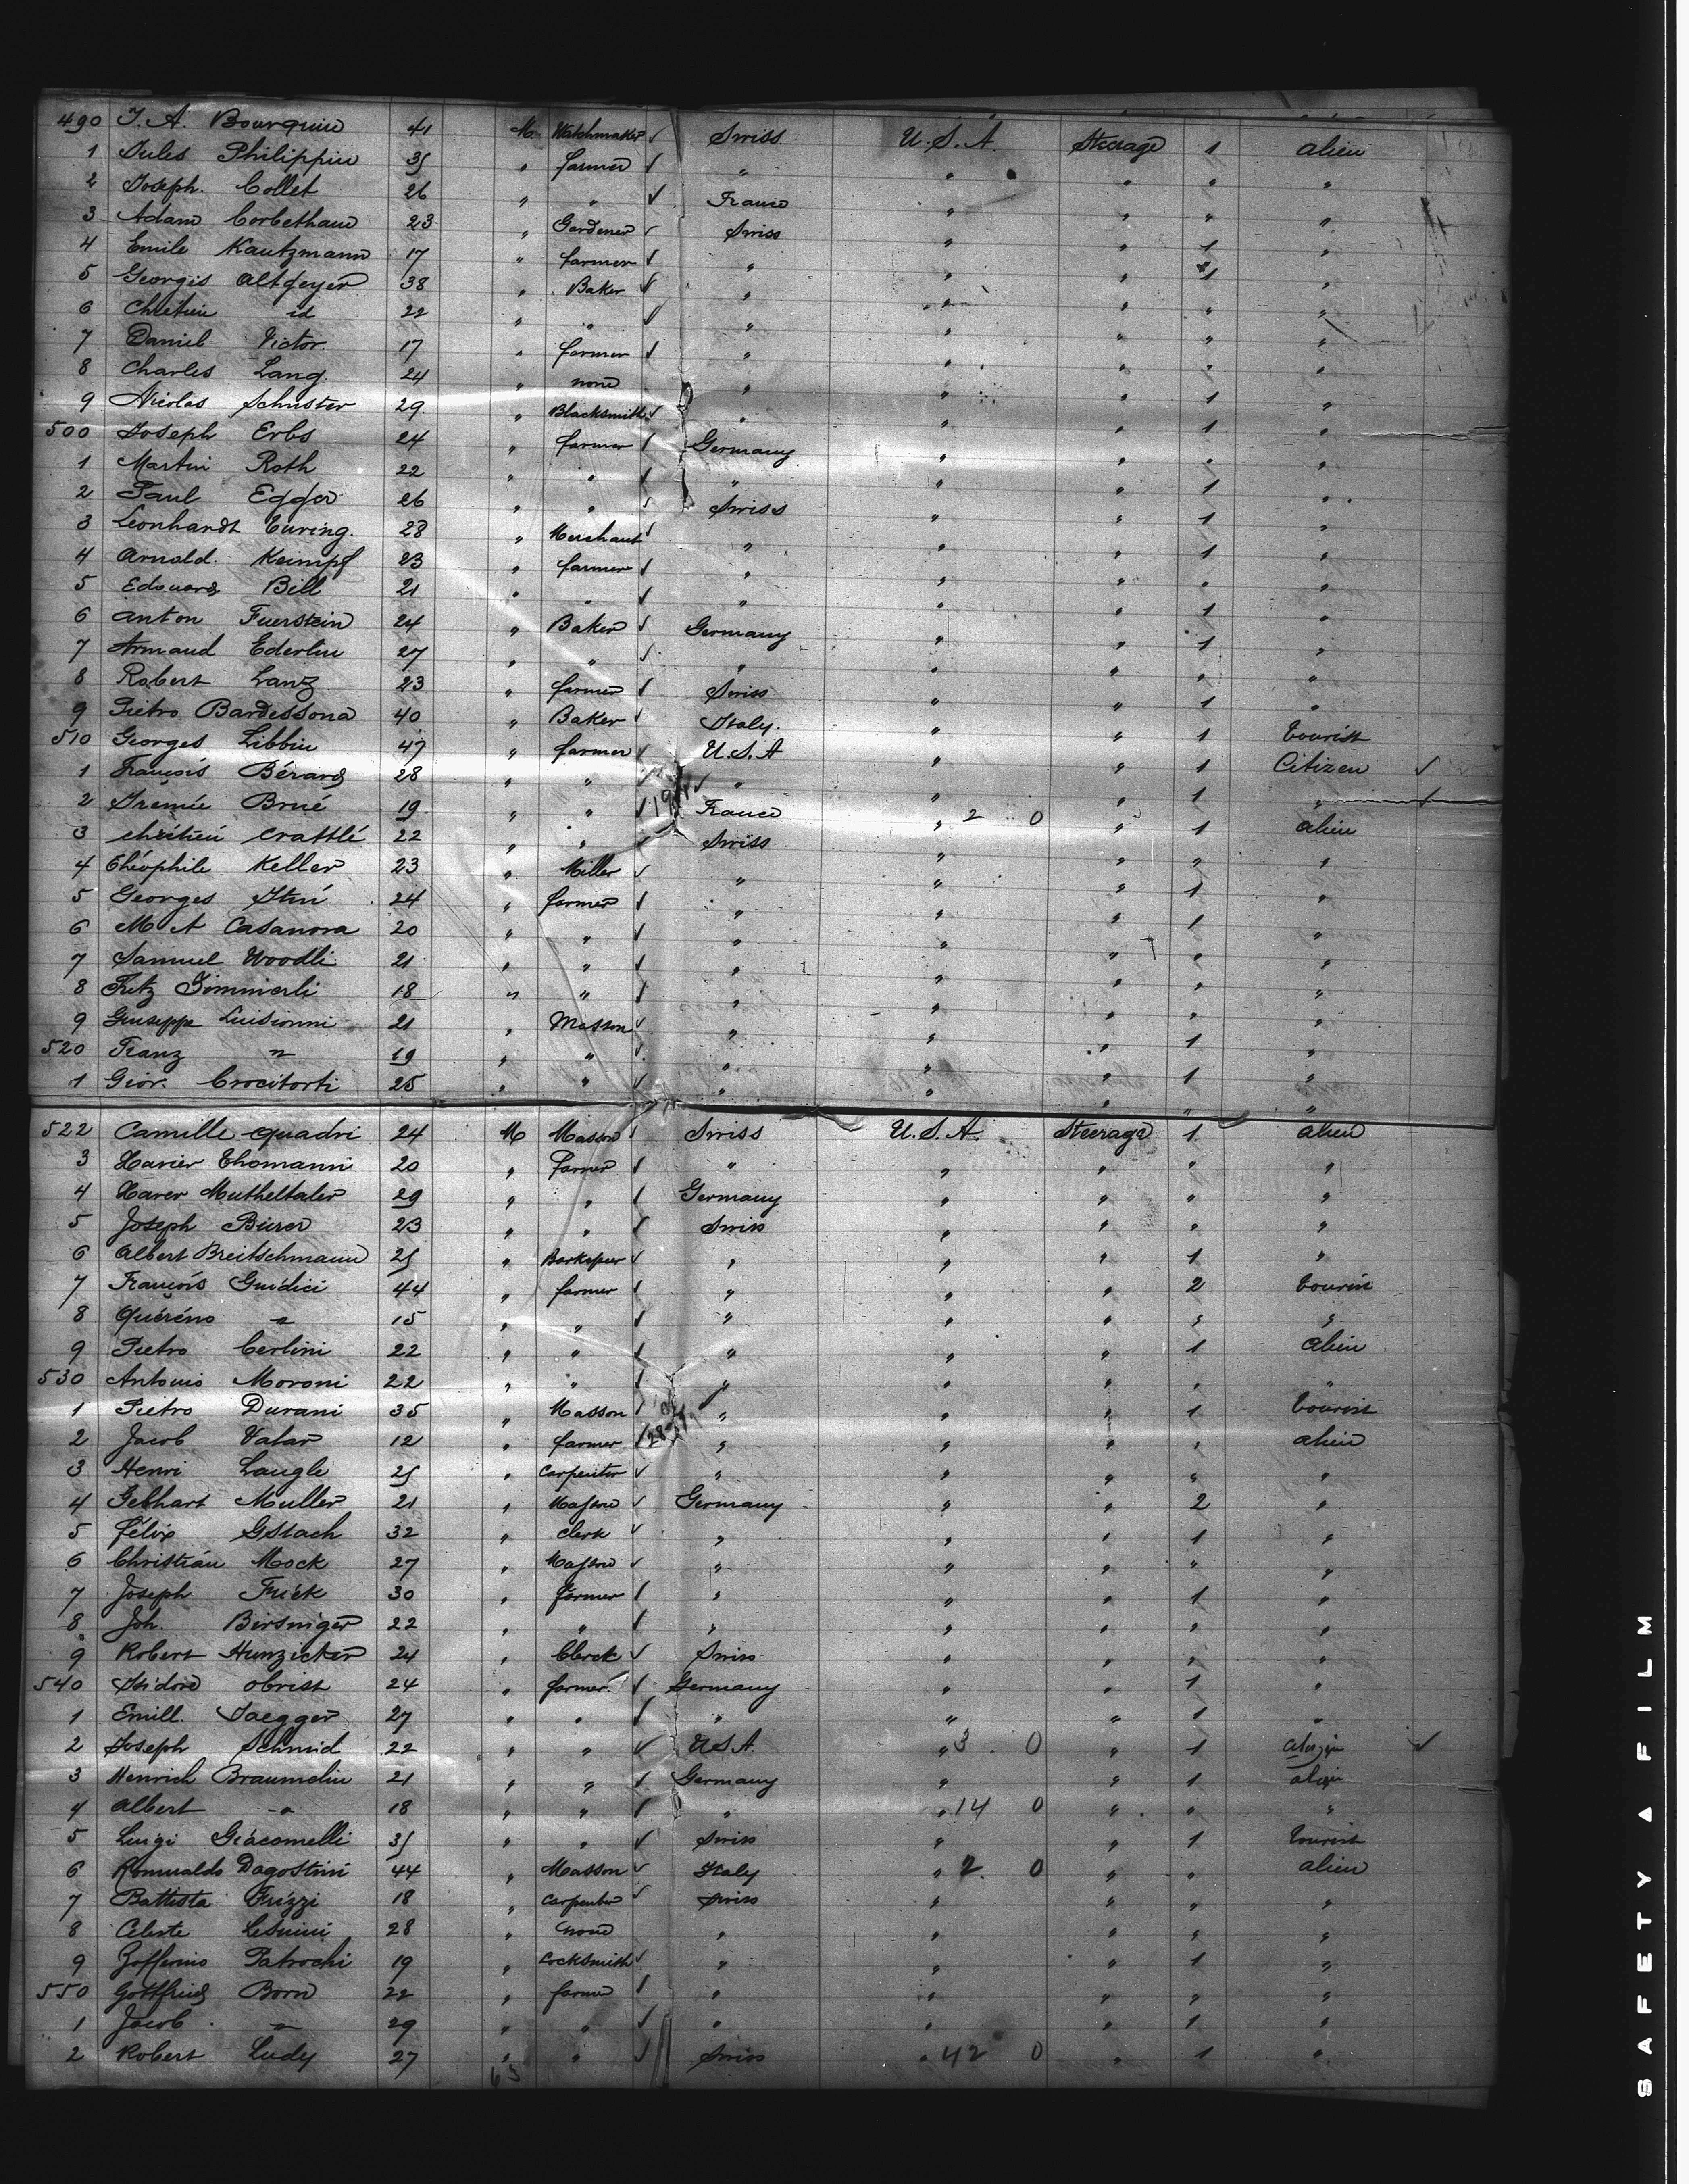 490 J. A. Bourquin 41 M. Watchmaker ✓ Swiss U.S.A. Steerage 1 alien
1 Jules Philippin 35 " farmer ✓ " " " " "
2 Joseph. Collet 26 " " ✓ France " " " "
3 Adam Corbethau 23 " Gardener ✓ Swiss " " " "
4 Emile Kautzmann 17 " farmer ✓ " " " 1 "
5 Georgis Altgeyer 38 " Baker ✓ " " " 1 "
6 Chrétien id 22 " " ✓ " " " " "
7 Daniel Victor 17 " farmer ✓ " " " " "
8 Charles Lang. 24 " none " " " " "
9 Nicolas Schuster 29. " Blacksmith ✓ " " " 1 "
500 Joseph Erbs 24 " farmer ✓ Germany " " 1 "
1 Martin Roth 22 " " ✓ " " " " "
2 Paul Egger 26 " " ✓ Swiss " " 1 "
3 Leonhardt Euring. 28 " Merchant ✓ " " " 1 "
4 Arnold. Keimpf 23 " farmer ✓ " " " 1 "
5 Edouard Bill 21 " " ✓ " " " " "
6 Anton Fuerstein 24 " Baker ✓ Germany " " 1 "
7 Armand Ederlin 27 " " ✓ " " " 1 "
8 Robert Lanz 23 " farmer ✓ Swiss " " " "
9 Pietro Bardessona 40 " Baker ✓ Italy. " " 1 "
510 Georges Libbin 47 " farmer ✓ U.S.A " " 1 tourist
1 François Bérard 28 " " ✓ " " " 1 Citizen ✓
2 Jrémie Brué 19 " " ✓ France " 2 0 " 1 " ✓
3 Chrétien Crattlé 22 " " ✓ Swiss " " 1 alien
4 Théophile Keller 23 " Miller ✓ " " " " "
5 Georges 24 " farmer ✓ " " " 1 "
6 M A Casanova 20 " " ✓ " " " 1 "
7 Samuel Woodli 21 " " ✓ " " " " "
8 Fritz Zimmerli 18 " " ✓ " " " " "
9 Giuseppe Luisionni 21 " Masson ✓ " " " " "
520 Franz " 19 " " ✓ " " " 1 "
1 Giov. Crocitorti 25 " " ✓ " " " 1 "
522 Camille Quadri 24 M Masson ✓ Swiss U.S.A. Steerage 1 alien
3 Xavier Thomann 20 " farmer ✓ " " " " "
4 Xaver Mutheltaler 29 " " ✓ Germany " " " "
5 Joseph Bürer 23 " " ✓ Swiss " " " "
6 Albert Breitschmann 25 " Barkeeper ✓ " " " 1 "
7 François Guidici 44 " farmer ✓ " " " 2 tourist
8 Quéréno " 15 " " ✓ " " " " "
9 Pietro Cerlini 22 " " ✓ " " " 1 alien
530 Antonio Moroni 22 " " ✓ " " " " "
1 Pietro Durani 35 " Masson ✓ " " " 1 tourist
2 Jacob Valar 12 " farmer ✓ " " " " alien
3 Henri Laugle 25 " Carpenter ✓ " " " " "
4 Gebhart Muller 21 " Masson ✓ Germany " " 2 "
5 Félix Gstach 32 " Clerk ✓ " " " 1 "
6 Christian Mock 27 " Masson ✓ " " " " "
7 Joseph Frick 30 " farmer ✓ " " " 1 "
8 Joh. Birsinger 22 " " ✓ " " " " "
9 Robert Hunzicker 24 " Clerck ✓ Swiss " " " "
540 Isidore Obrist 24 " farmer ✓ Germany " " 1 "
1 Emill. Jaegger 27 " " ✓ " " " 1 "
2 Joseph Schmid 22 " " ✓ U.S.A. " 3 0 " 1 ✓
3 Henrich Braunelin 21 " " ✓ Germany " " 1 alien
4 Albert " 18 " " ✓ " " 14 0 " " "
5 Luigi Giacomelli 35 " " ✓ Swiss " " 1 tourist
6 Romualdo Dagostini 44 " Masson ✓ Italy " 2 0 " " alien
7 Battista Frizzi 18 " Carpenter ✓ Swiss " " " "
8 Celeste Lesnini 28 " none " " " " "
9 Zofferino Patrochi 19 " Locksmith ✓ " " " 1 "
550 Gottfried Born 22 " farmer ✓ " " " " "
1 Jacob " 29 " " ✓ " " " 1 "
2 Robert Ludy 27 " " ✓ Swiss " 42 0 " 1 "
63
SAFETY ▲ FILM